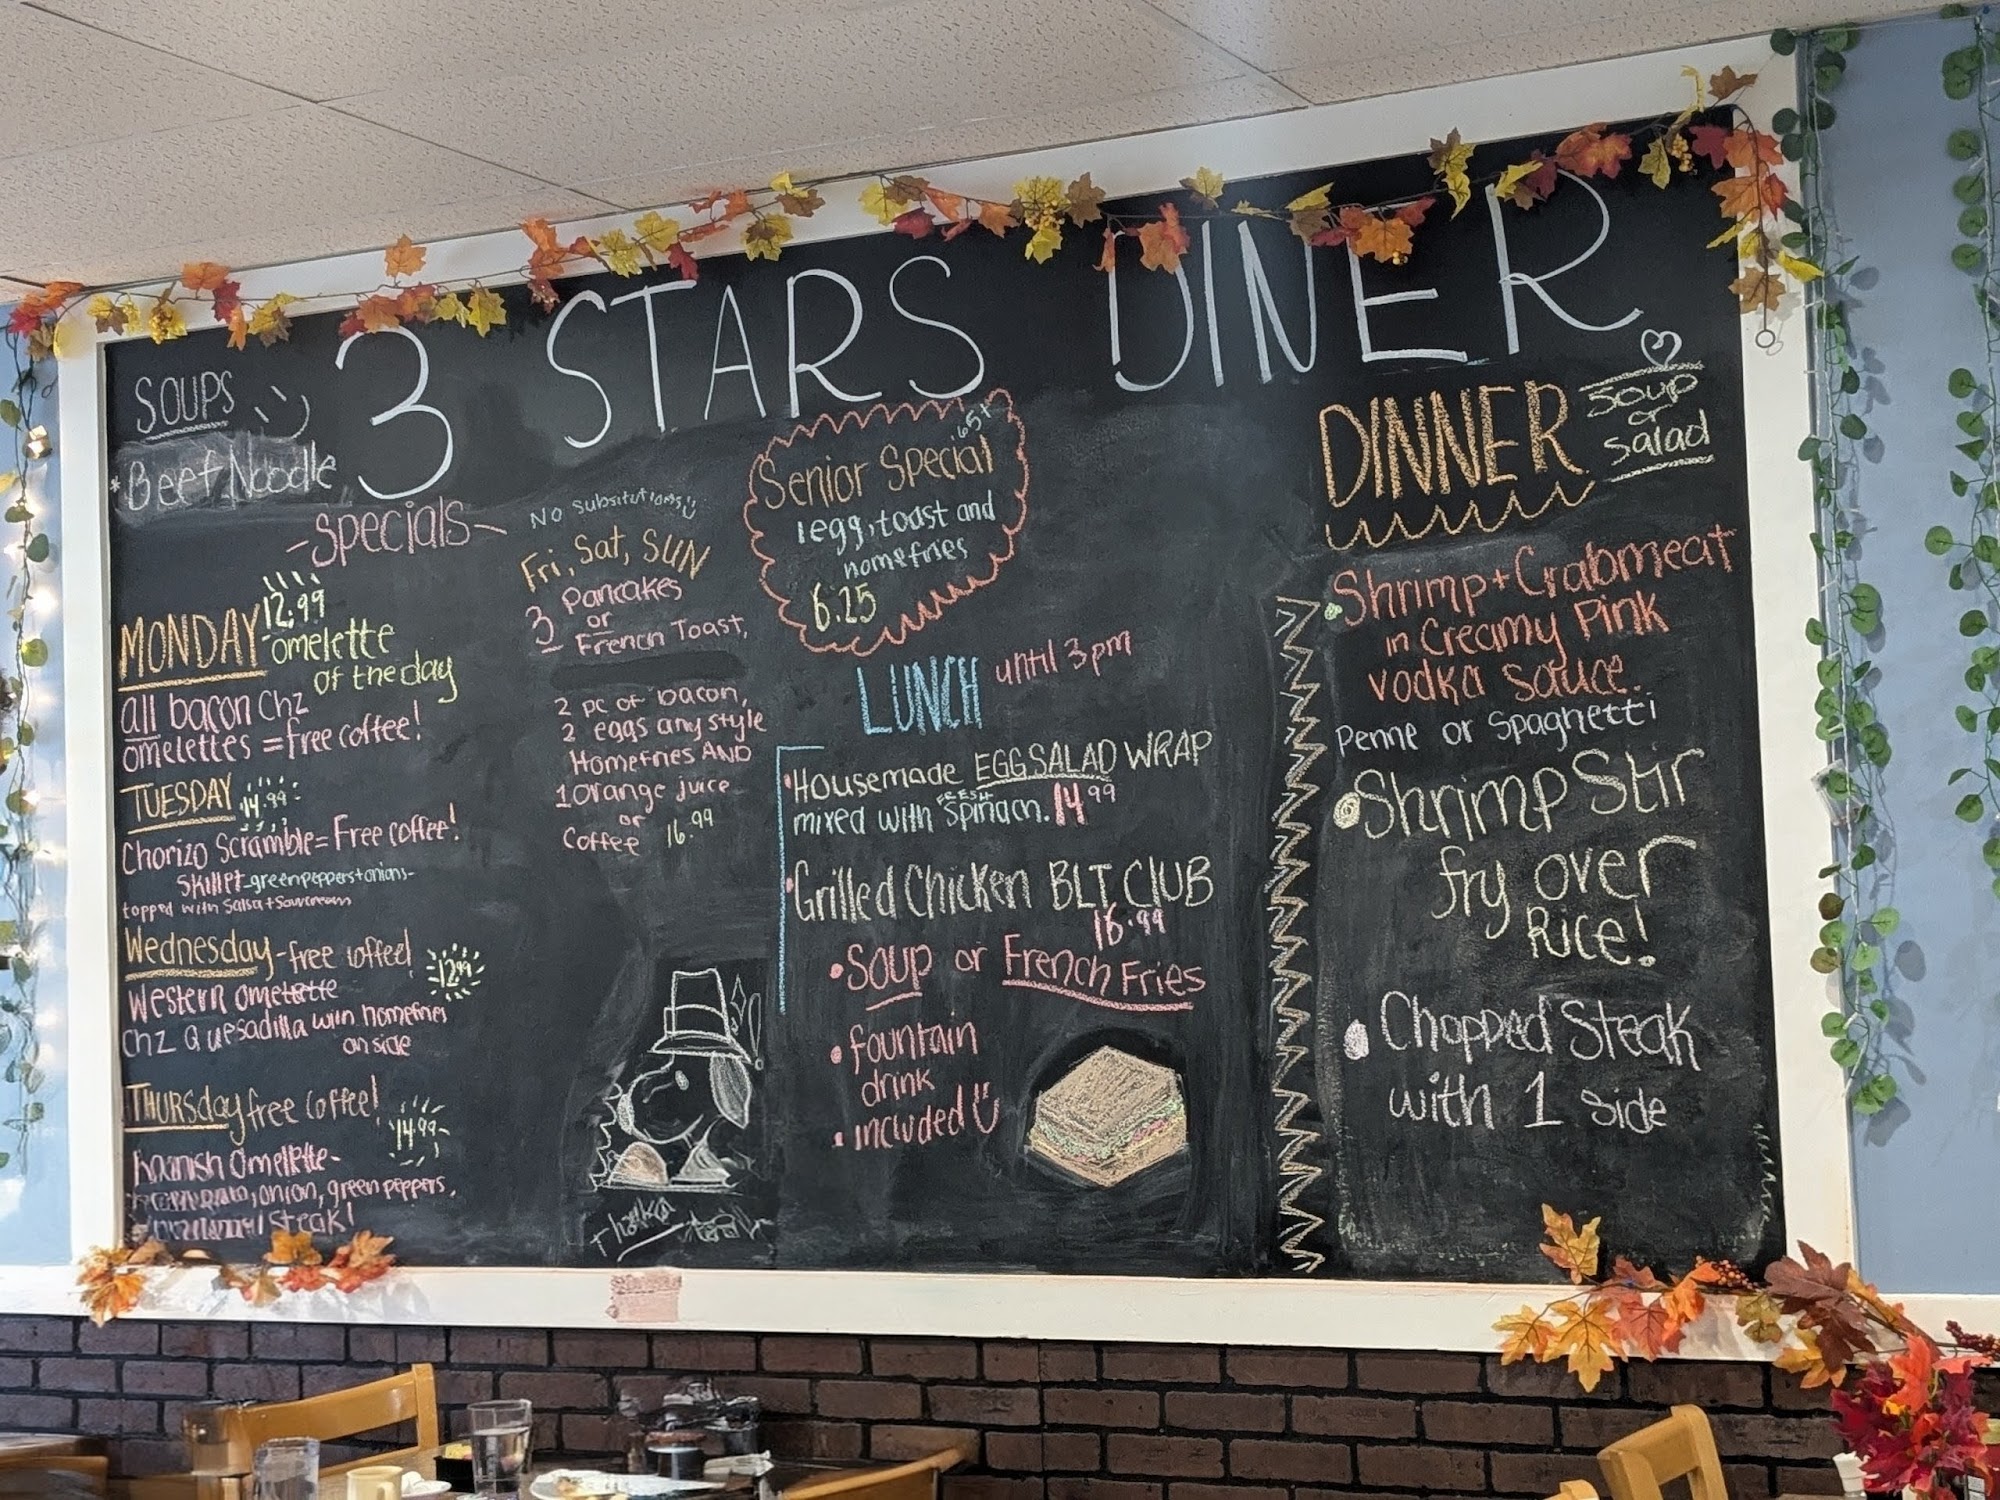 3 STARS DINER
SOUPS
*Beef Noodle
-Specials-
MONDAY 12.99
-omelette
of the day
all bacon Chz
omelettes = free coffee!
TUESDAY 14.99
Chorizo Scramble = Free coffee!
Skillet -green peppers+onions-
topped with Salsa + Sourcream
Wednesday - free coffee!
12.99
Western omelette
Chz Quesadilla with homefries
on side
THURSday free coffee!
14.99
Spanish omelette-
onion, green peppers,
steak!
No Substitutions
Fri, Sat, SUN
3 Pancakes
or
French Toast,
2 pc of bacon,
2 eggs any style
Homefries AND
1 Orange juice
or
Coffee 16.99
Thankful
Senior Special 65+
1 egg, toast and
homefries
6.25
LUNCH until 3pm
•Housemade EGG SALAD WRAP
mixed with FRESH Spinach. 14.99
•Grilled Chicken BLT CLUB
16.99
•Soup or French Fries
•fountain
drink
•included
DINNER
Soup
or
Salad
Shrimp + Crabmeat
in Creamy Pink
vodka sauce
Penne or Spaghetti
Shrimp Stir
fry over
Rice!
Chopped Steak
with 1 side